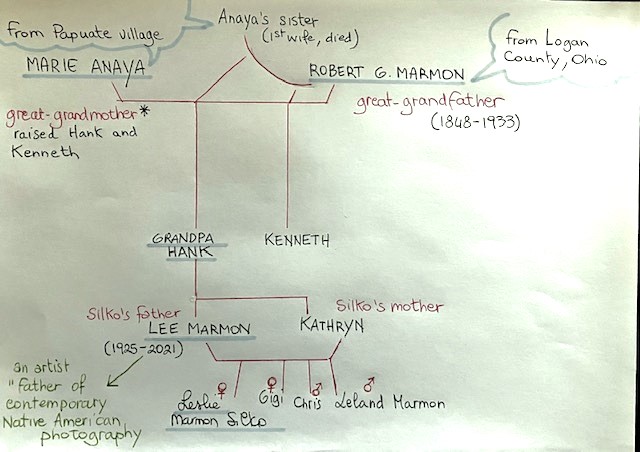 from Papuate village
Anaya's sister
(1st wife, died)
from Logan
County, Ohio
MARIE ANAYA
ROBERT G. MARMON
great-grandmother*
raised Hank and
Kenneth
great-grandfather
(1848-1933)
GRANDPA
HANK
KENNETH
Silko's father
LEE MARMON
(1925-2021)
Silko's mother
KATHRYN
an artist
"father of
contemporary
Native American
photography
♀
Leslie
Marmon Silko
♀
Gigi
♂
Chris
♂
Leland Marmon